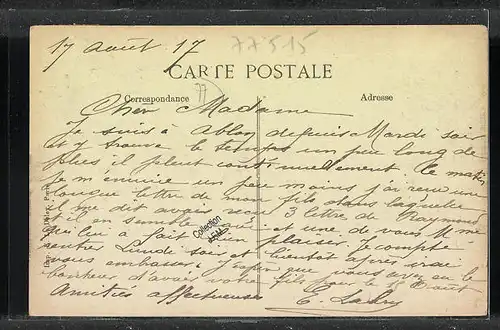 17 août 17
77515
CARTE POSTALE
Correspondance
Adresse
77
Cher Madame
Je suis à Ablon depuis Mardi soir
et y trouve le temps un peu long de
plus il pleut continuellement. Ce matin
je m'ennuie un peu moins j'ai reçu une
longue lettre de mon fils dans laquelle
il me dit avoir reçu 3 lettre de Raymond
et il en semble et une de vous M me
qui lui a fait bien plaisir. Je compte
rentrer Lundi soir et bientôt après irai
vous embrasser J'espère que vous avez eu le
bonheur d'avoir votre fils pour le 15 Août
Amitiés affectueuses
Collection
LFM